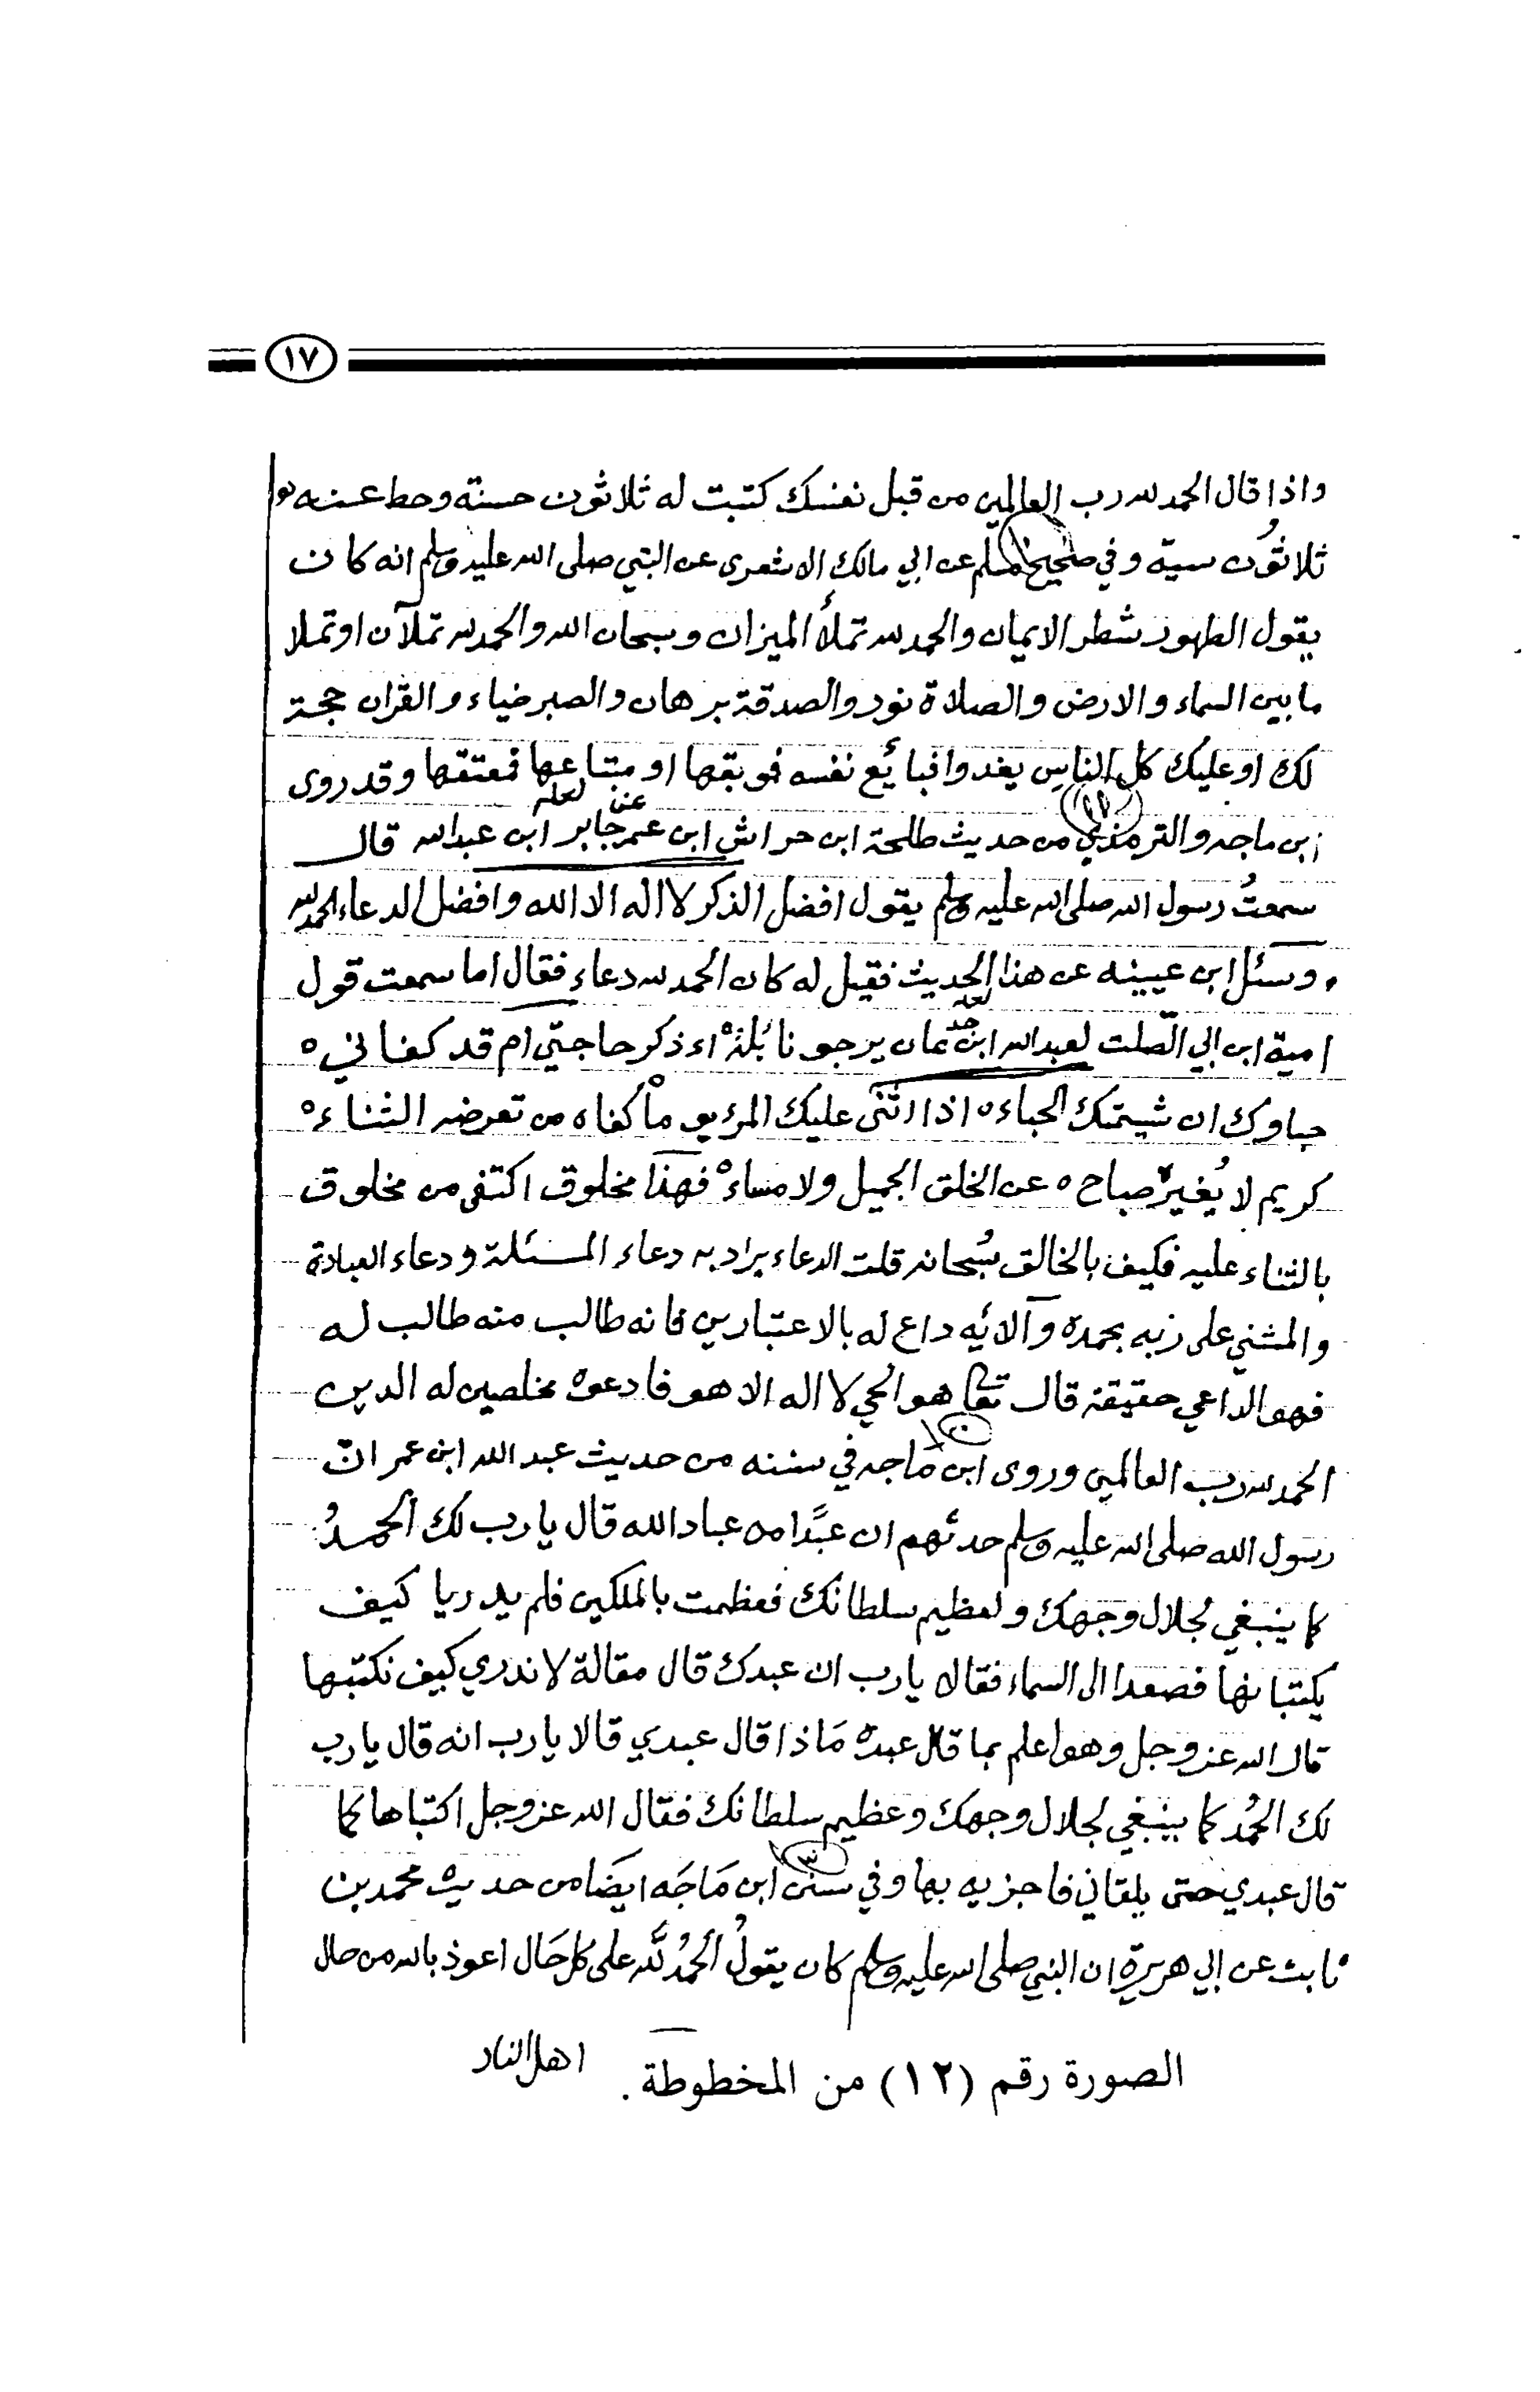 ١٧
واذا قال الحمد لله رب العالمين من قبل نفسك كتبت له ثلاثون حسنة وحط عنه
ثلاثون سية وفي صحيح مسلم عن ابي مالك الاشعرى عن النبي صلى الله عليه وسلم انه كان
يقول الطهور شطر الايمان والحمد لله تملأ الميزان وسبحان الله والحمد لله تملآن او تملا
ما بين السماء والارض والصلاة نور والصدقة برهان والصبر ضياء والقران حجة
لك او عليك كل الناس يغدوا فبائع نفسه فموبقها او مبتاعها فمعتقها وقد روى
ابن ماجه والترمذي من حديث طلحة ابن حراش ابن عمر عن جابر لعله ابن عبدالله قال
سمعتُ رسول الله صلى الله عليه وسلم يقول افضل الذكر لا اله الا الله وافضل الدعاء الحمد لله
وسئل ابن عيينه عن هذا الحديث فقيل له كان الحمد لله دعاء فقال اما سمعت قول
امية ابن ابي الصّلت لعبدالله ابن جدعان لعله يرجو نائله اءذكر حاجتي ام قد كفاني ه
حباوك ان شيمتك الحباءه اذا اثنى عليك المرء يوما كفاه من تعرضه الثناء ه
كريم لا يُغيره صباح ه عن الخلق الجميل ولا مساء ه فهذا مخلوق اكتفى من مخلوق
بالثناء عليه فكيف بالخالق سُبحانه قلت الدعاء يراد به دعاء المسئلة ودعاء العبادة
والمثني على ربه بحمده وآلائه داع له بالاعتبارين فانه طالب منه طالب له
فهو الداعي حقيقة قال تعا هو الحي لا اله الا هو فادعوه مخلصين له الدين
الحمد لله رب العالمين وروى ابن مَاجه في سننه من حديث عبد الله ابن عمر انّ
رسول الله صلى الله عليه وسلم حدثهم ان عبدًا من عباد الله قال يا رب لك الحمدُ
كما ينبغي لجلال وجهك ولعظيم سلطانك فعظمت بالملكين فلم يدريا كيف
يكتبانها فصعدا الى السماء فقالا يارب ان عبدك قال مقالة لا ندري كيف نكتبها
قال الله عز وجل وهو اعلم بما قال عبده مَاذا قال عبدي قالا يارب انه قال يارب
لك الحمُد كما ينبغي لجلال وجهك وعظيم سلطانك فقال الله عز وجل اكتباها كما
قال عبدي حتى يلقاني فاجزيه بها وفي سنن ابن مَاجَه ايضًا من حديث محمد بن
ثابت عن ابي هريرة ان النبي صلى الله عليه وسلم كان يقولُ الحمدُ للّه على كل حَال اعوذ بالله من حال
اهل النار
الصورة رقم (١٢) من المخطوطة .